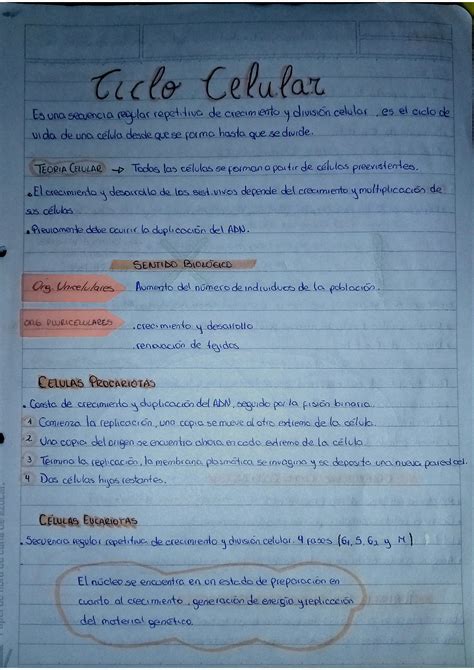 Ciclo Celular
Es una secuencia regular repetitiva de crecimiento y división celular, es el ciclo de
vida de una célula desde que se forma hasta que se divide.
TEORIA CELULAR → Todas las células se forman a partir de células preexistentes.
• El crecimiento y desarrollo de los seet. vivos depende del crecimiento y multiplicación de
sus células.
• Previamente debe ocurrir la duplicación del ADN.
SENTIDO BIOLÓGICO
Org. Unicelulares Aumento del número de individuos de la población.
ORG. PLURICELULARES . crecimiento y desarrollo
. renovación de tejidos
CELULAS PROCARIOTAS
• Consta de crecimiento y duplicación del ADN, seguido por la fisión binaria.
1 Comienza la replicación, una copia se mueve al otro extremo de la célula.
2 Una copia del origen se encuentra ahora en cada extremo de la célula
3 Termina la replicación, la membrana plasmática se invagina y se deposita una nueva pared cel.
4 Dos células hijas restantes.
CÉLULAS EUCARIOTAS
• Secuencia regular repetitiva de crecimiento y división celular. 4 fases (G1, S, G2 y M)
El núcleo se encuentra en un estado de preparación en
cuanto al crecimiento, generación de energía y replicación
del material genético.